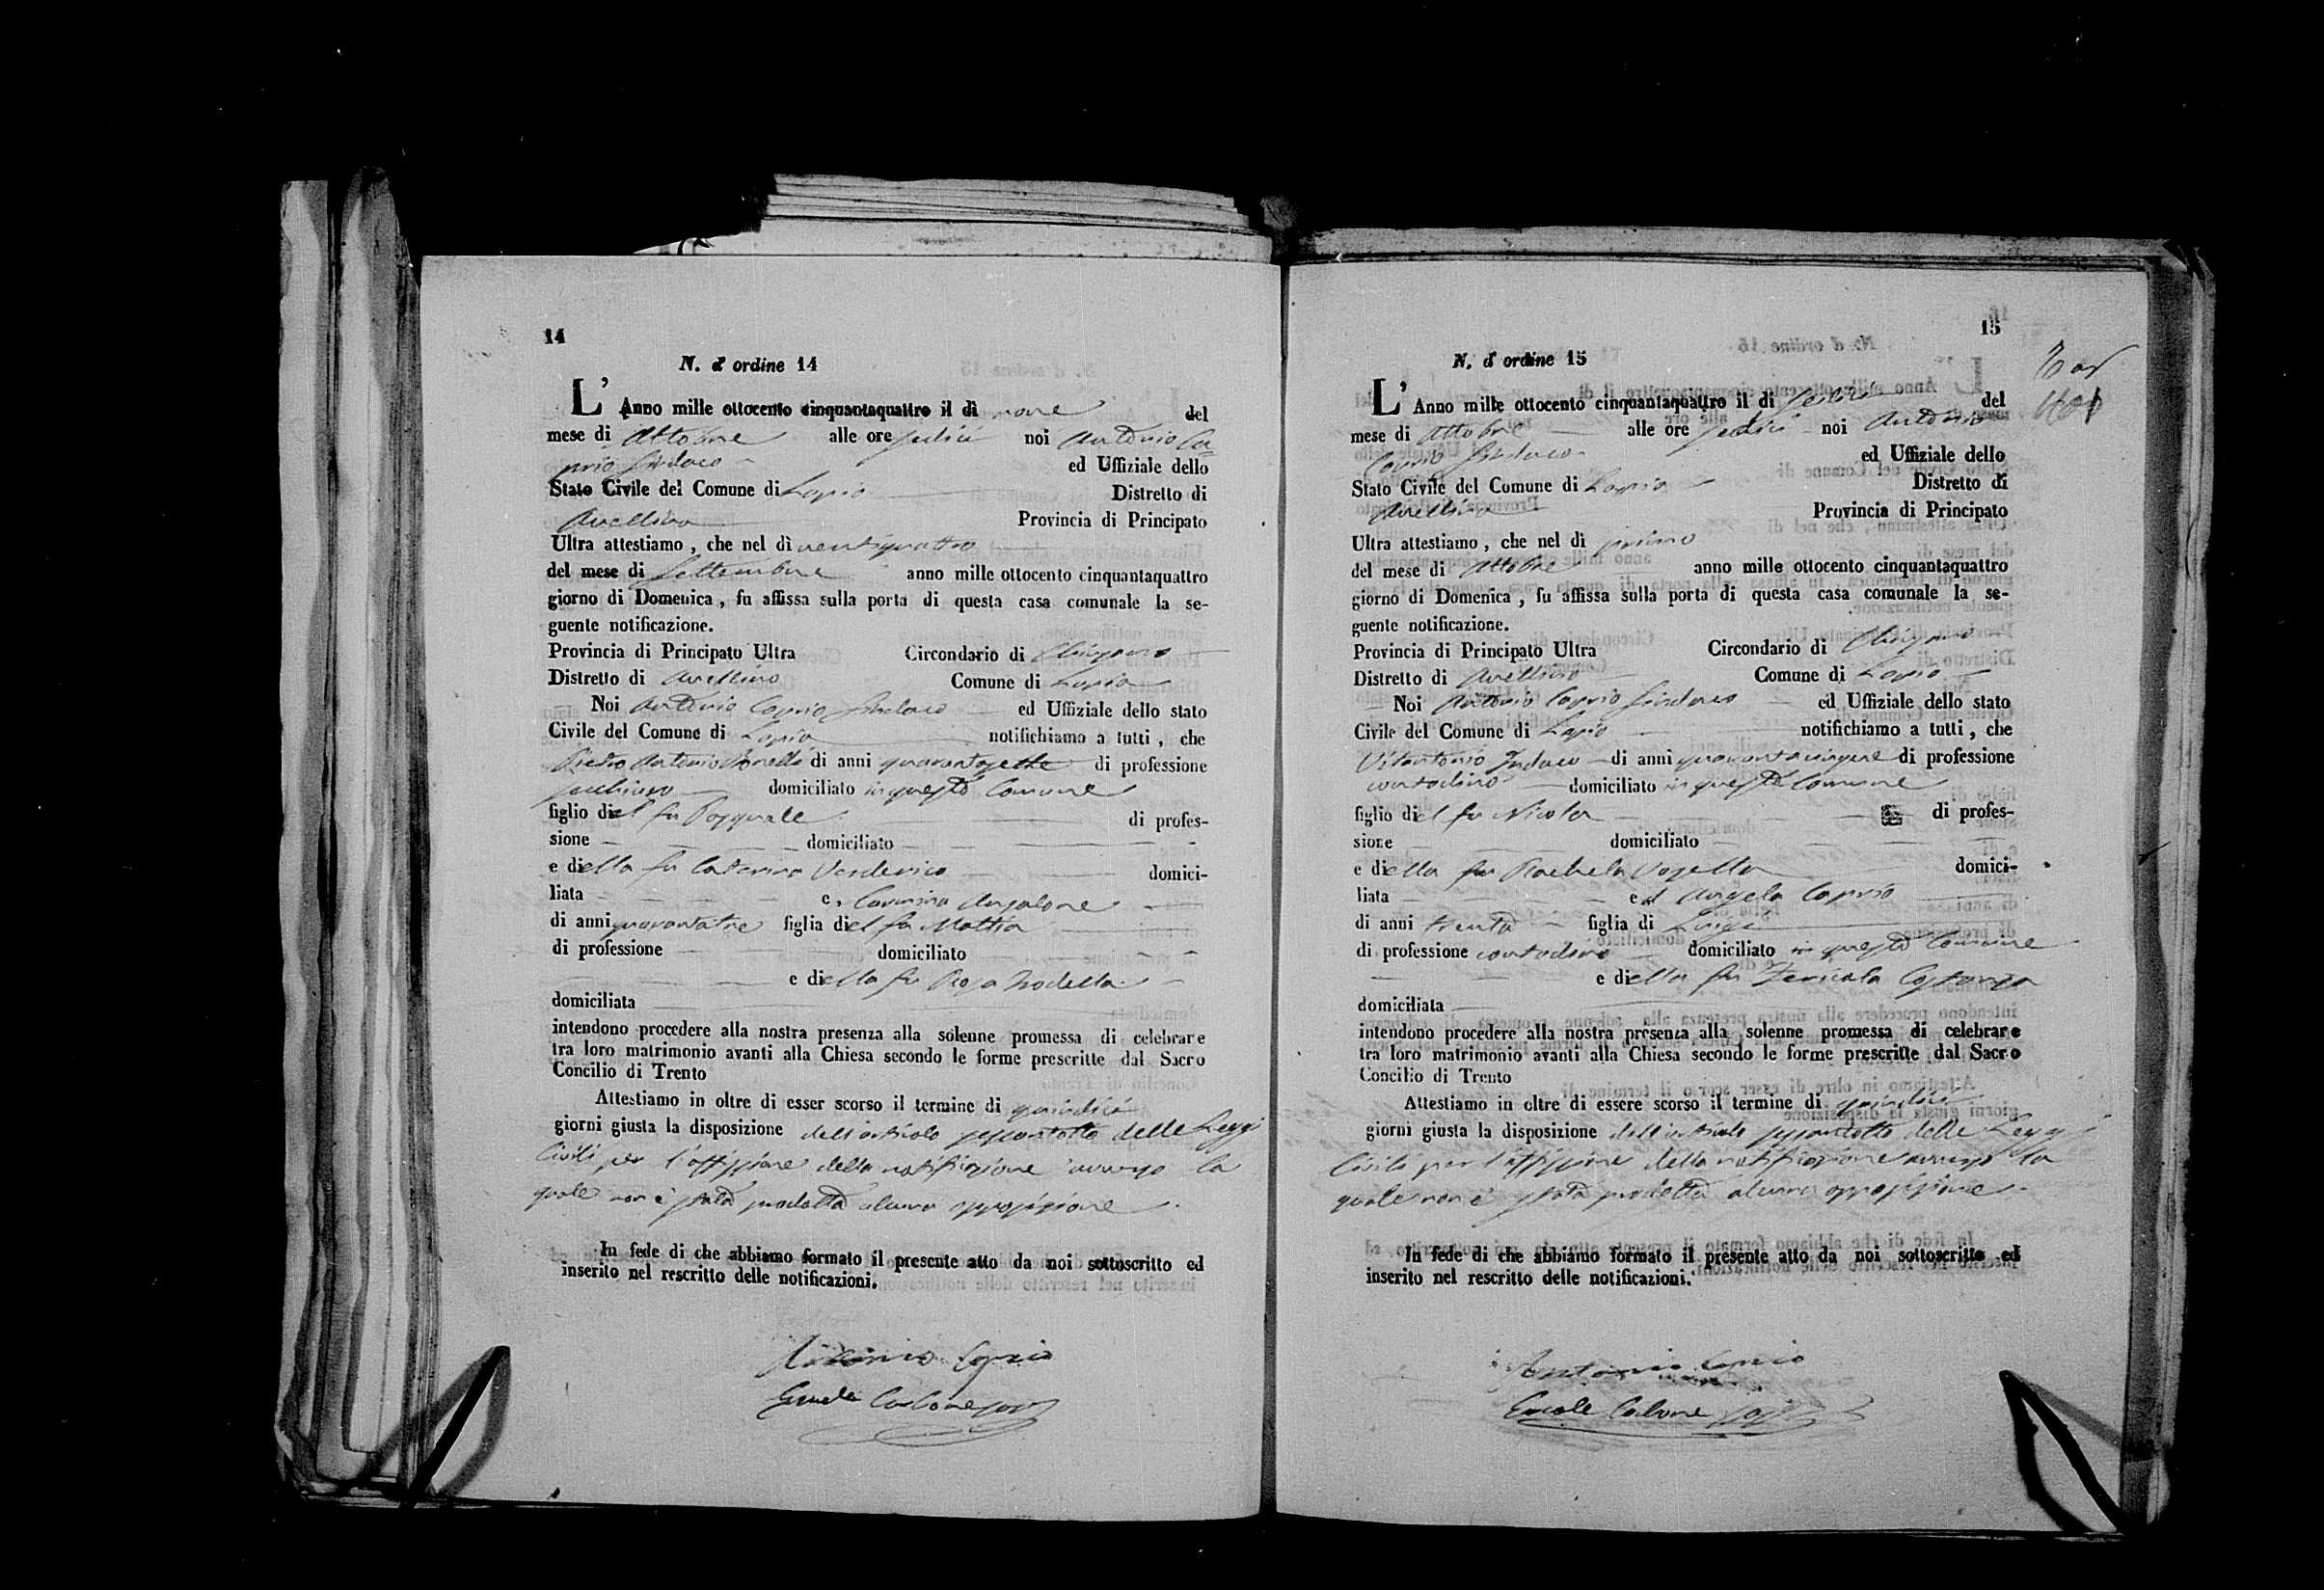 14
N. d' ordine 14
L' Anno mille ottocento cinquantaquattro il dì nove del
mese di Ottobre alle ore sedici noi Antonio Ca=
prio Sindaco ed Uffiziale dello
Stato Civile del Comune di Lapio Distretto di
Avellino Provincia di Principato
Ultra attestiamo, che nel dì ventiquattro
del mese di Settembre anno mille ottocento cinquantaquattro
giorno di Domenica, fu affissa sulla porta di questa casa comunale la se-
guente notificazione.
Provincia di Principato Ultra Circondario di Chiusano
Distretto di Avellino Comune di Lapio
Noi Antonio Caprio Sindaco ed Uffiziale dello stato
Civile del Comune di Lapio notifichiamo a tutti, che
Pietro Antonio di anni quarantasette di professione
domiciliato in questo Comune
figlio del fu Pasquale di profes-
sione domiciliato
e della fu Caterina Verderico domici-
liata e, Carmina Anzalone
di anni quarantatre figlia del fu Mattia
di professione domiciliato
e della fu Rosa
domiciliata
intendono procedere alla nostra presenza alla solenne promessa di celebrare
tra loro matrimonio avanti alla Chiesa secondo le forme prescritte dal Sacro
Concilio di Trento
Attestiamo in oltre di esser scorso il termine di quindici
giorni giusta la disposizione dell'articolo sessantotto delle Leggi
Civili per l'affissione della notificazione avverso la
quale non è stata prodotta alcuna opposizione.
In fede di che abbiamo formato il presente atto da noi sottoscritto ed
inserito nel rescritto delle notificazioni.
Antonio Caprio
Carbone
15
N. d' ordine 15
L' Anno mille ottocento cinquantaquattro il di sedici del
mese di Ottobre alle ore sedici noi Antonio
Caprio Sindaco ed Uffiziale dello
Stato Civile del Comune di Lapio Distretto di
Avellino Provincia di Principato
Ultra attestiamo, che nel dì primo
del mese di Ottobre anno mille ottocento cinquantaquattro
giorno di Domenica, fu affissa sulla porta di questa casa comunale la se-
guente notificazione.
Provincia di Principato Ultra Circondario di Chiusano
Distretto di Avellino Comune di Lapio
Noi Antonio Caprio Sindaco ed Uffiziale dello stato
Civile del Comune di Lapio notifichiamo a tutti, che
Vitantonio di anni quarantacinque di professione
contadino domiciliato in questo Comune
figlio del fu Nicola di profes-
sione domiciliato
e della fu Rachela domici-
liata ed Angela Caprio
di anni trenta figlia di Luigi
di professione contadino domiciliato in questo Comune
e della fu Costanza
domiciliata
intendono procedere alla nostra presenza alla solenne promessa di celebrare
tra loro matrimonio avanti alla Chiesa secondo le forme prescritte dal Sacro
Concilio di Trento
Attestiamo in oltre di essere scorso il termine di quindici
giorni giusta la disposizione dell'articolo sessantotto delle Leggi
Civili per l'affissione della notificazione avverso la
quale non è stata prodotta alcuna opposizione.
In fede di che abbiamo formato il presente atto da noi sottoscritto ed
inserito nel rescritto delle notificazioni.
Antonio Caprio
Carbone